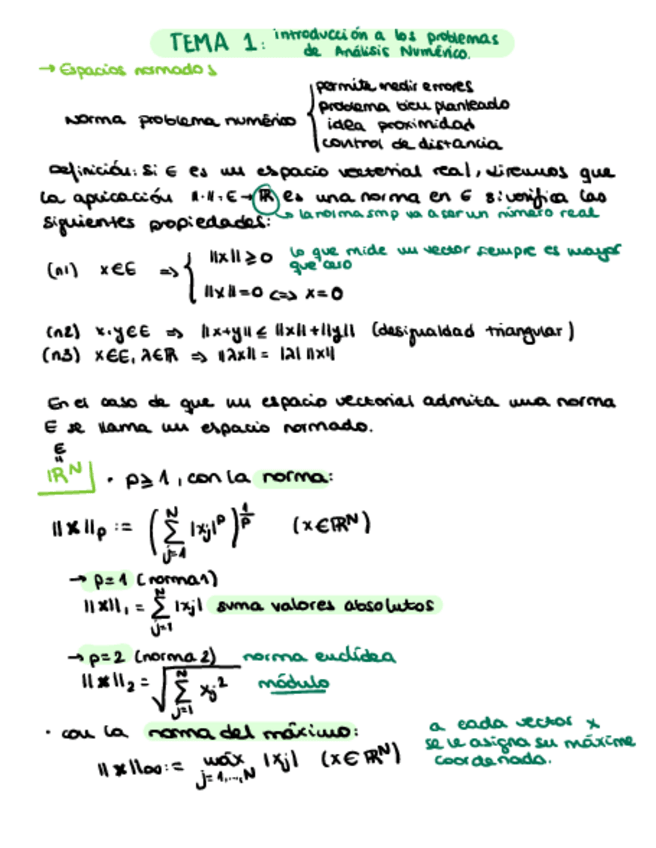 TEMA 1: introducción a los problemas
de Análisis Numérico.
→ Espacios normados
norma problema numérico
permite medir errores
problema bien planteado
idea proximidad
control de distancia
Definición: Si E es un espacio vectorial real, diremos que
la aplicación ||·||: E → ℝ es una norma en E si verifica las
siguientes propiedades:
↳ la norma smp va a ser un número real
(n1) x∈E ⇒ { ||x|| ≥ 0
lo que mide un vector siempre es mayor
que cero
||x||=0 ⇔ x=0
(n2) x,y∈E ⇒ ||x+y|| ≤ ||x||+||y|| (desigualdad triangular)
(n3) x∈E, λ∈ℝ ⇒ ||λx|| = |λ| ||x||
En el caso de que un espacio vectorial admita una norma
E se llama un espacio normado.
E
=
ℝᴺ · p≥1, con la norma:
||x||p := (∑_{j=1}^{N} |xj|^p)^{1/p} (x∈ℝᴺ)
→ p=1 (norma1)
||x||₁ = ∑_{j=1}^{N} |xj| suma valores absolutos
→ p=2 (norma 2) norma euclídea
||x||₂ = √(∑_{j=1}^{N} xj²) módulo
· con la norma del máximo:
||x||∞ := máx_{j=1,...,N} |xj| (x∈ℝᴺ)
a cada vector x
se le asigna su máxima
coordenada.